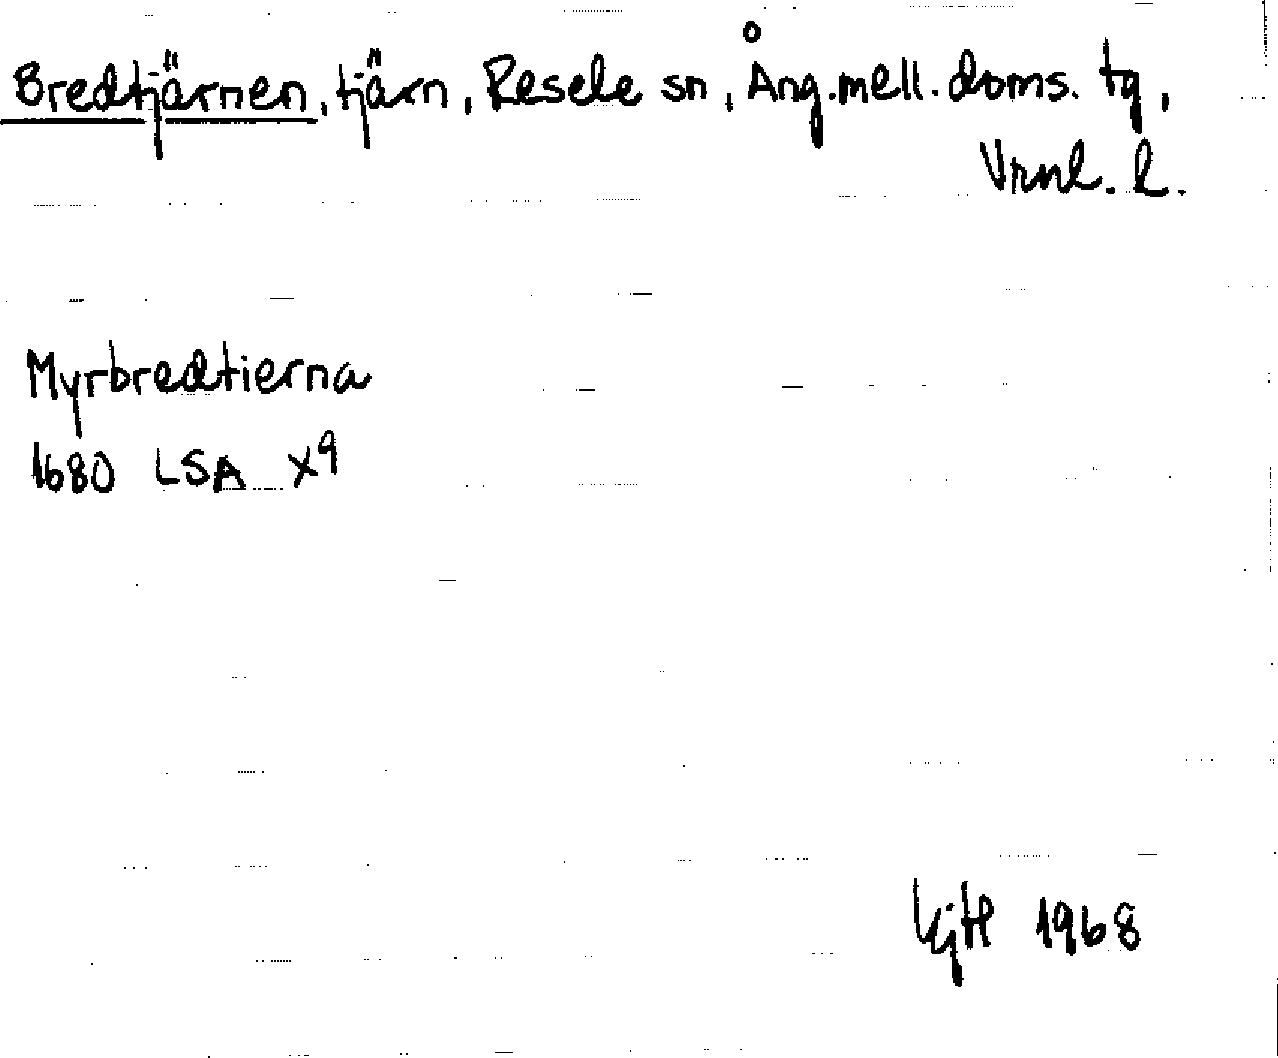 Bredtjärnen, tjärn, Resele sn, Ång.mell.doms. tg,
Vrnl. l.
Myrbredtierna
1680 LSA X9
1968